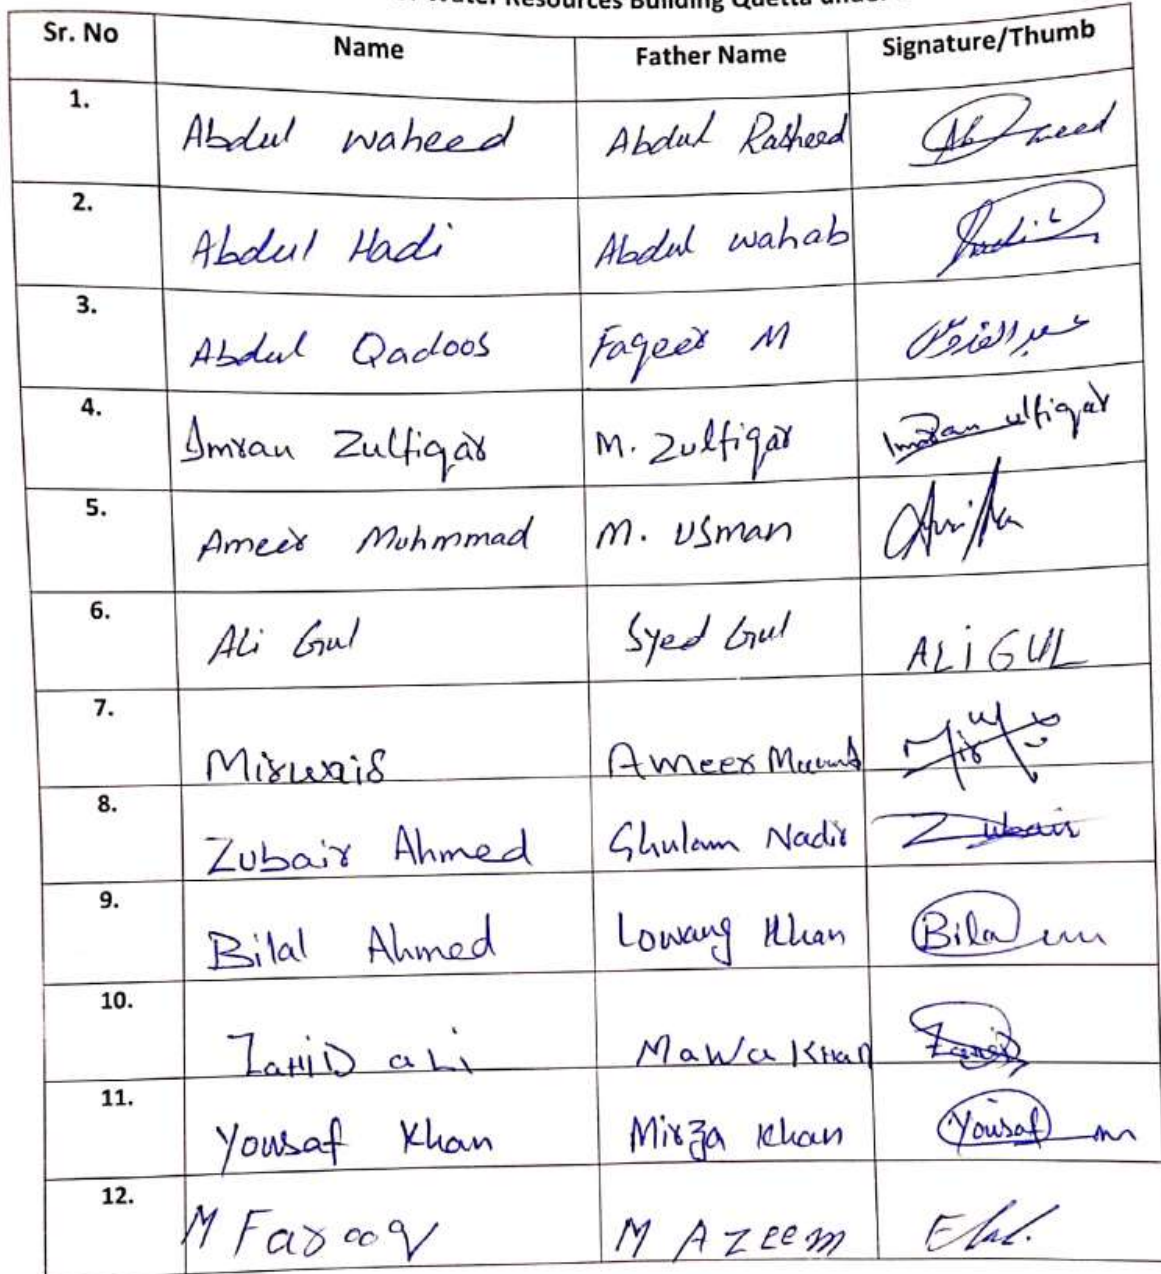 Water Resources Building Quetta under
Sr. No Name Father Name Signature/Thumb
1. Abdul waheed Abdul Rasheed
2. Abdul Hadi Abdul wahab
3. Abdul Qadoos Faqeer M عبدالقدوس
4. Imran Zulfiqar M. Zulfiqar Imran ulfiqar
5. Ameer Muhmmad M. USman
6. Ali Gul Syed Gul ALi GUL
7. Mirwais Ameer
8. Zubair Ahmed Ghulam Nadir Zubair
9. Bilal Ahmed Lowang Khan Bilal
10. ZaHiD aLi Mawa KHan
11. Yousaf Khan Mirza Khan Yousaf
12. M Farooq M AZeem